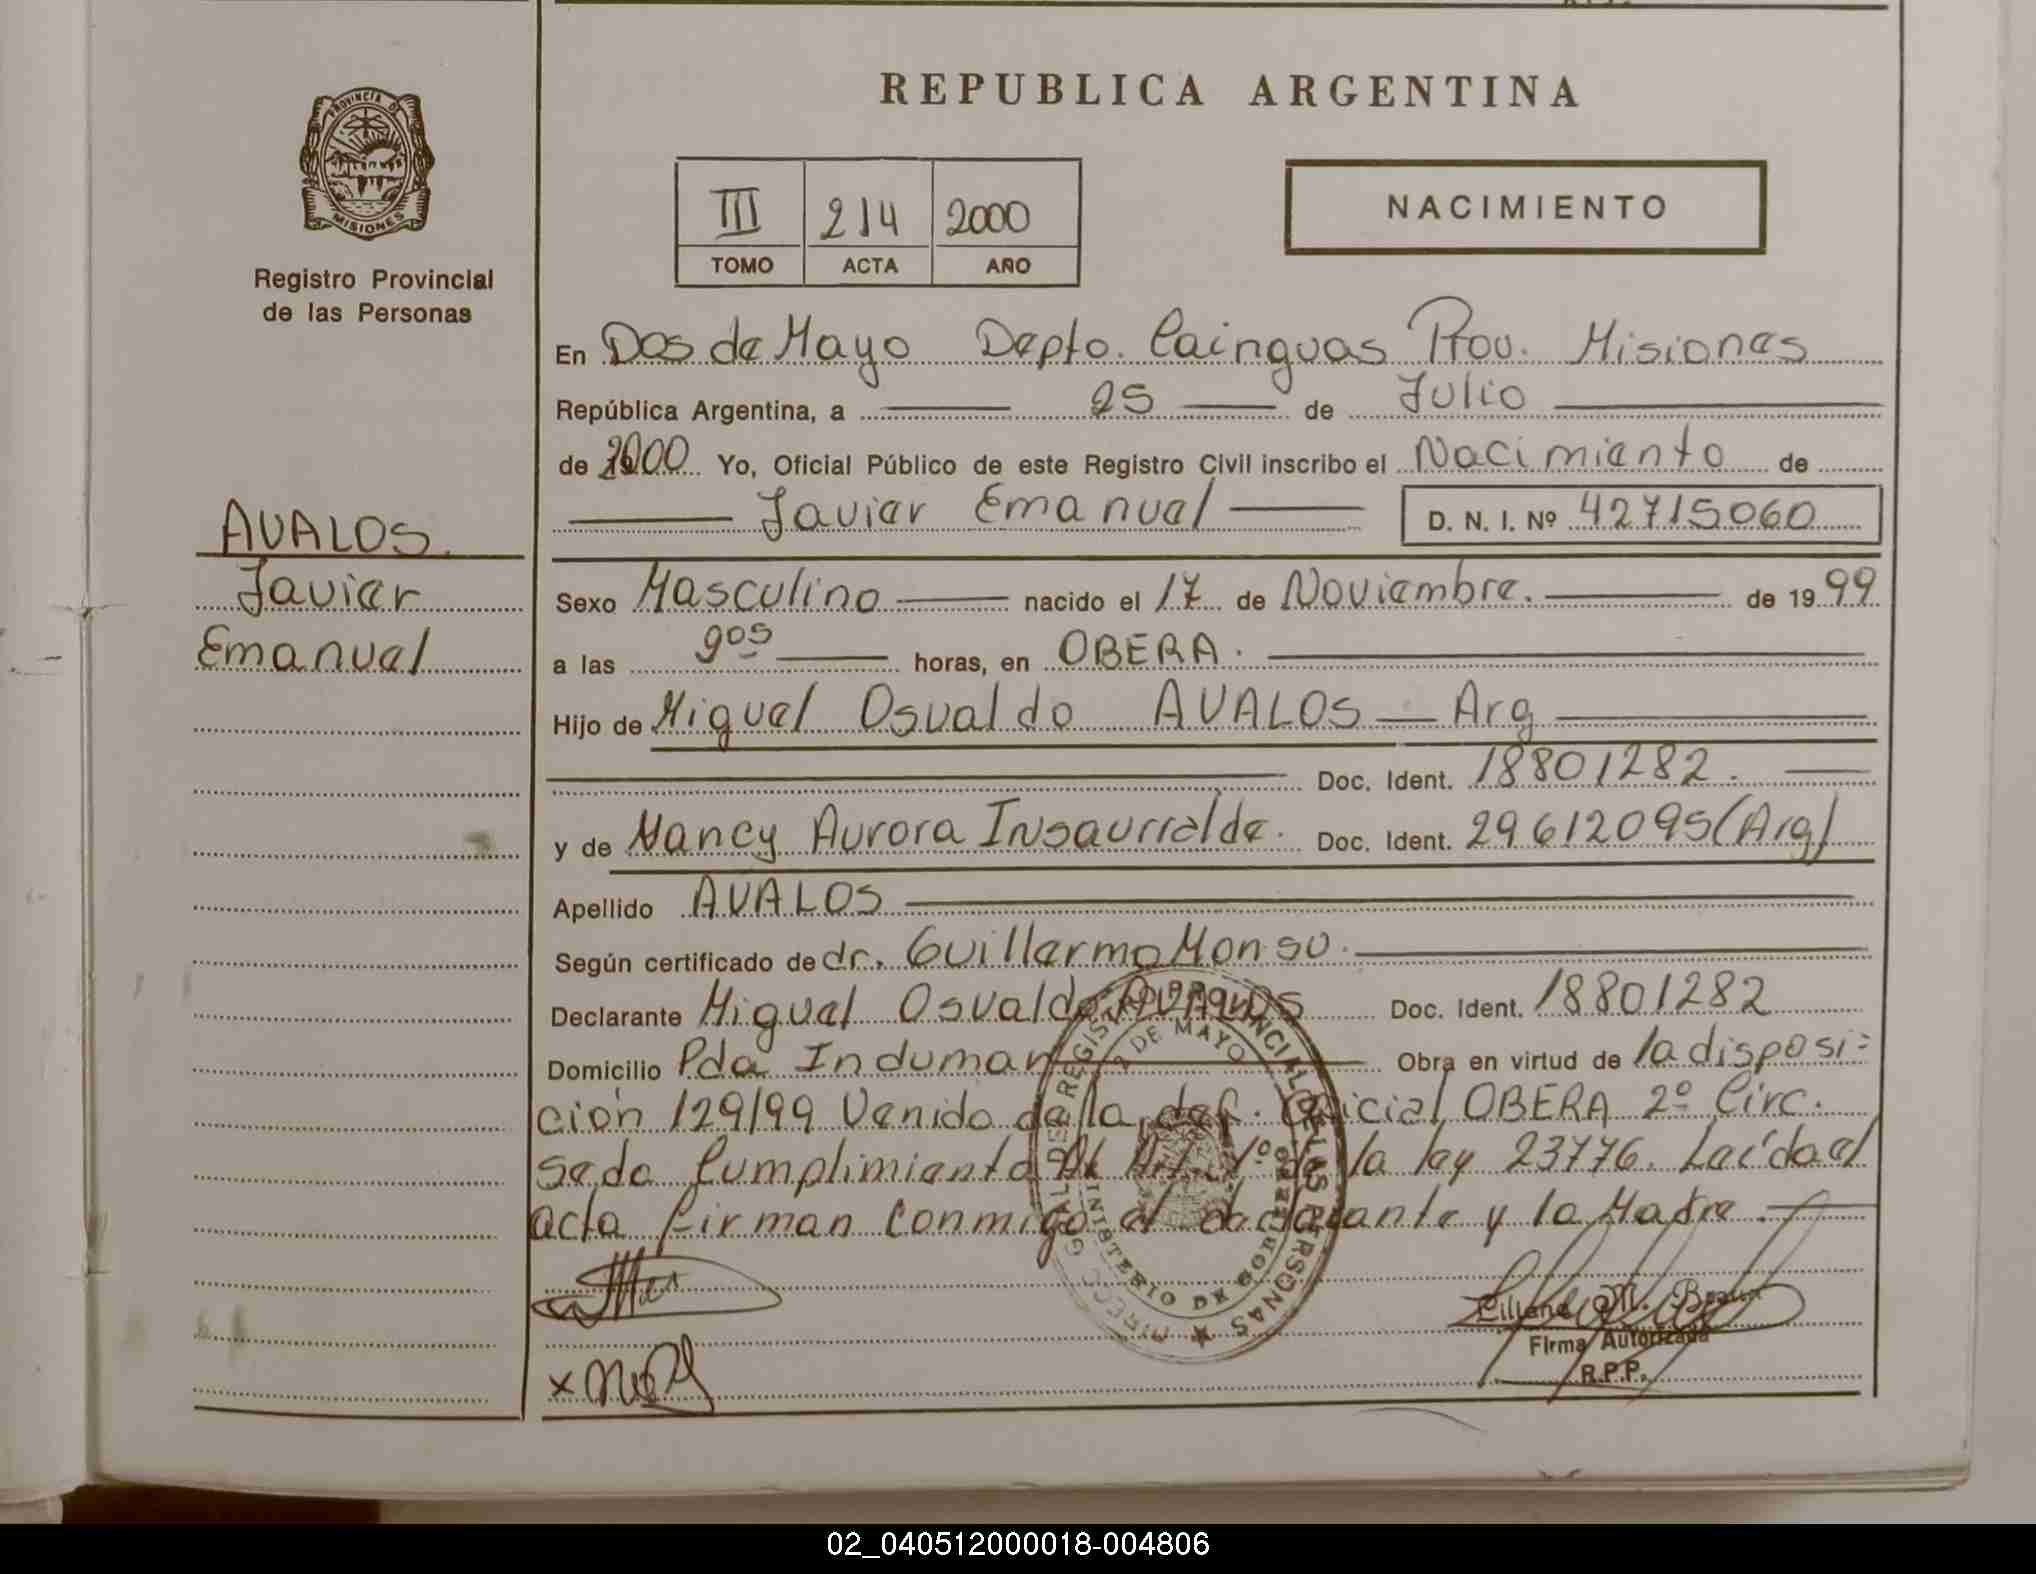 REPUBLICA ARGENTINA
PROVINCIA DE
MISIONES
Registro Provincial
de las Personas
III 214 2000
TOMO ACTA AÑO
NACIMIENTO
En Dos de Mayo Depto. Cainguas Prov. Misiones
República Argentina, a 25 de Julio
de 2000 Yo, Oficial Público de este Registro Civil inscribo el Nacimiento de
Javier Emanuel D. N. I. Nº 42715060
AVALOS.
Javier
Emanuel
Sexo Masculino nacido el 17 de Noviembre. de 1999
a las 9:05 horas, en OBERA.
Hijo de Miguel Osvaldo AVALOS — Arg
Doc. Ident. 18801282.
y de Nancy Aurora Insaurralde. Doc. Ident. 29612095 (Arg)
Apellido AVALOS
Según certificado de dr. Guillermo Monso.
Declarante Miguel Osvaldo AVALOS Doc. Ident. 18801282
Domicilio Pda Induman Obra en virtud de la disposi=
ción 129/99 Venido de la def. Oficial OBERA 2º Circ.
se da Cumplimiento al Art. 1º de la ley 23776. Leída el
acta firman conmigo el declarante y la Madre.
2 DE MAYO
MINISTERIO DE GOBIERNO
Liliana M.
Firma Autorizada
R.P.P.
02_040512000018-004806